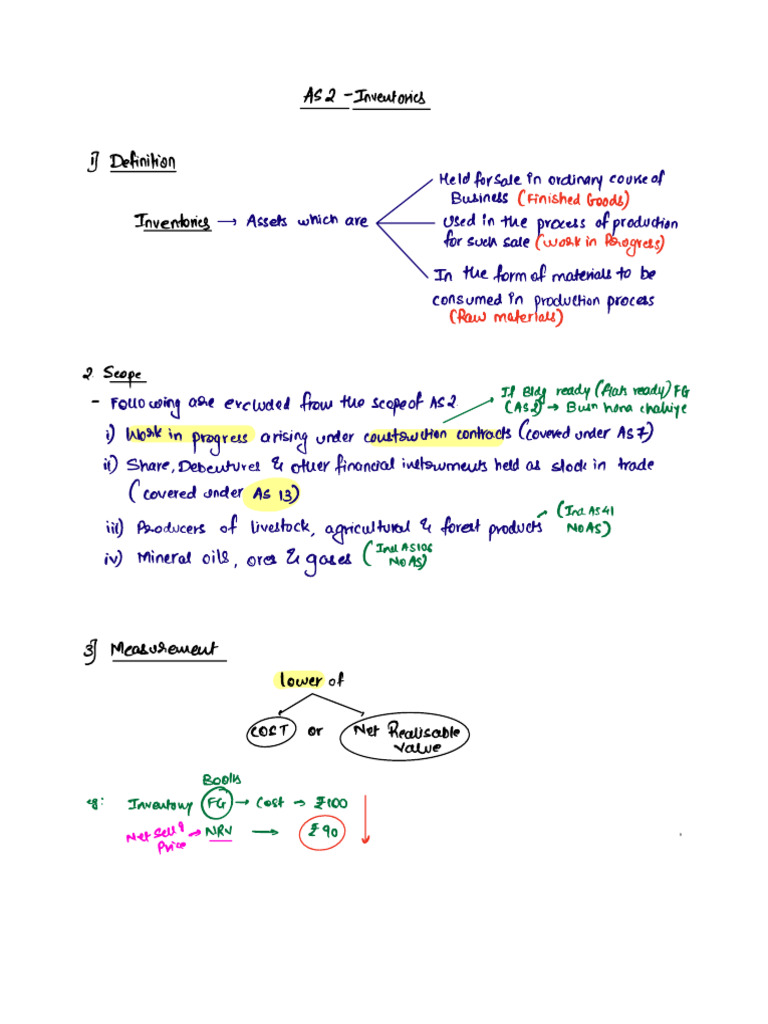 AS 2 - Inventories
1] Definition
Inventories → Assets which are
Held for sale in ordinary course of
Business (Finished Goods)
Used in the process of production
for such sale (Work in Progress)
In the form of materials to be
consumed in production process
(Raw materials)
2. Scope
- Following are excluded from the scope of AS 2
If Bldg ready (flat ready) FG
(AS2) → Busn hona chahiye
i) Work in progress arising under construction contracts (covered under AS 7)
ii) Share, Debentures & other financial instruments held as stock in trade
(covered under AS 13)
iii) Producers of livestock, agricultural & forest products
(Ind AS 41
No AS)
iv) Mineral oils, ores & gases
(Ind AS 106
No AS)
3] Measurement
lower of
COST or Net Realisable
Value
Books
eg: Inventory FG → Cost → ₹100
Net Sell g
Price → NRV → ₹90